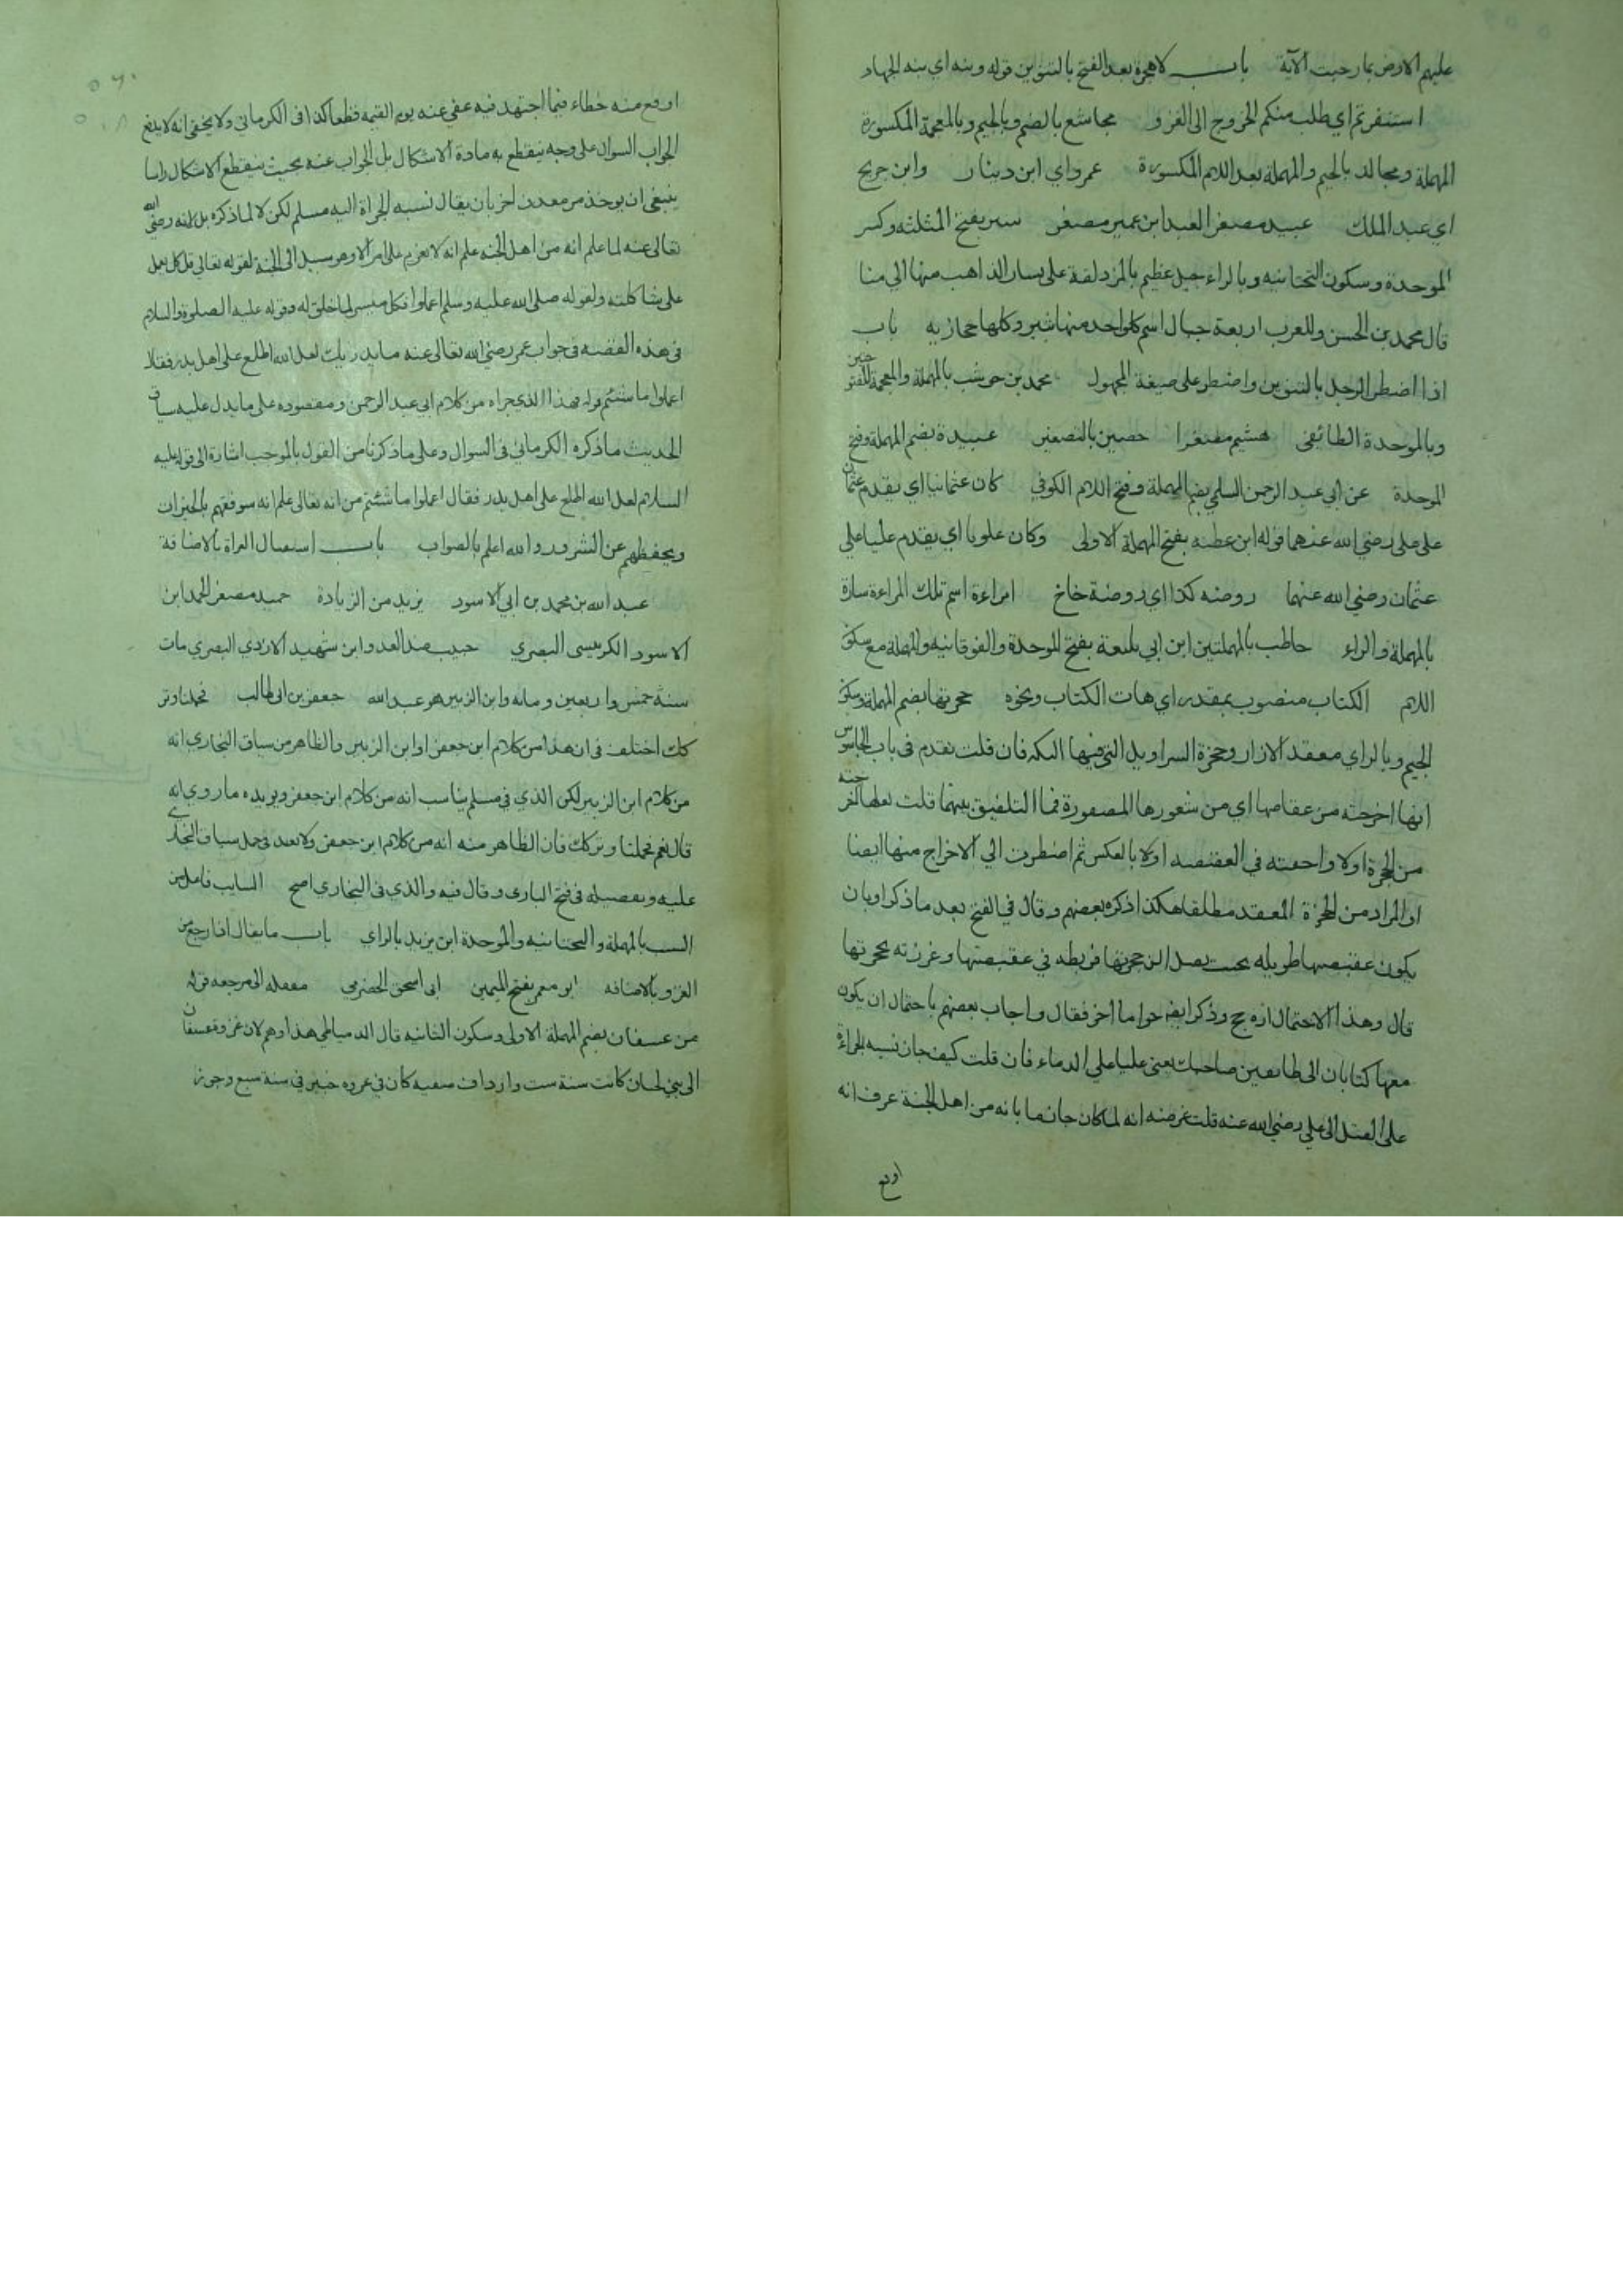 عليهم الارض بما رحبت الآية باب لا هجرة بعد الفتح بالتنوين قوله ونيه اي نيه الجهاد
استنفرتم اي طلب منكم الخروج الى الغزو مجاشع بالضم وبالجيم وبالمعجمة المكسورة
المهملة ومجالد بالجيم والمهملة بعد اللام المكسورة عمرو اي ابن دينار وابن جريج
اي عبد الملك عبيد مصغر العبد ابن عمير مصغر ثبير بفتح المثلثه وكسر
الموحدة وسكون التحتانيه وبالراء جبل عظيم بالمزدلفة على يسار الذاهب منها الي منا
قال محمد بن الحسن وللعرب اربعة جبال اسم كل واحد منها ثبير وكلها حجازيه باب
اذا اضطر الرجل بالتنوين واضطر على صيغة المجهول محمد بن حوشب بالمهملة والمعجمة
وبالموحدة الطائفى هشيم مصغرا حصين بالتصغير عبيدة بضم المهملة وفتح
الموحدة عن ابي عبد الرحمن السلمي بضم المهملة وفتح اللام الكوفي كان عثمانيا اي يقدم عثمان
على على رضي الله عنهما قوله ابن عطيه بفتح المهملة الاولى وكان علويا اي يقدم عليا على
عثمان رضي الله عنهما روضه كذا اي روضة خاخ امراءة اسم تلك المراءة سارة
بالمهملة والراء حاطب بالمهملتين ابن ابي بلتعة بفتح الموحدة والفوقانيه والمهملة مع سكون
اللام الكتاب منصوب بمقدر اي هات الكتاب ونحوه حجزتها بضم المهملة وسكون
الجيم وبالزاي معقد الازار وحجزة السراويل التي فيها التكه فان قلت تقدم في باب الجاسوس
انها اخرجته من عقاصها اي من شعورها المضفورة فما التلفيق بينهما قلت لعلها اخرجته
من الحجزة اولا واخفته في العقيصه اولا بالعكس ثم اضطرت الي الاخراج منها ايضا
او المراد من الحجزة المعقد مطلقا هكذا ذكره بعضهم وقال في الفتح بعد ما ذكر او بان
يكون عقيصتها طويله بحيث يصل الى حجزتها فربطه في عقيصتها وغرزته بحجزتها
قال وهذا الاحتمال ارجح وذكر ايضا جوابا اخر فقال واجاب بعضهم باحتمال ان يكون
معها كتابان الى طايفتين صاحبك يعني عليا علي الدماء فان قلت كيف جاز نسبه الجراءة
على القتل الى علي رضي الله عنه قلت غرضه انه لما كان جازما بانه من اهل الجنة عرف انه
اوقع
اوقع منه خطاء فيما اجتهد فيه عفي عنه يوم القيمه قطعا كذا فى الكرماني ولا يخفى انه لا يدفع
الجواب السوال على وجه ينقطع به مادة الاشكال بل الجواب عنه بحيث ينقطع الاشكال راسا
ينبغى ان يوخذ من معدن اخر بان يقال نسبه الجراة اليه مسلم لكن لا لما ذكره بل لانه رضي الله
تعالى عنه لما علم انه من اهل الجنه علم انه لا يعزم على امر الا وهو سبيل الى الجنة لقوله تعالى قل كل يعمل
على شاكلته ولقوله صلى الله عليه وسلم اعملوا فكل ميسر لما خلق له وقوله عليه الصلوة والسلام
فى هذه القصه فى جواب عمر رضي الله تعالى عنه ما يدريك لعل الله اطلع على اهل بدر فقال
اعملوا ما شئتم قوله فهذا الذي جراه من كلام ابي عبد الرحمن ومقصوده على ما يدل عليه سياق
الحديث ما ذكره الكرماني فى السوال وعلى ما ذكرنا من القول بالموجب اشارة الى قوله عليه
السلام لعل الله اطلع على اهل بدر فقال اعملوا ما شئتم من انه تعالى علم انه سوفقهم بالخيرات
ويحفظهم عن الشرور والله اعلم بالصواب باب استقبال الغزاة بالاضافة
عبد الله بن محمد بن ابي الاسود يزيد من الزيادة حميد مصغر الحمد ابن
الاسود الكرابيسى البصري حبيب ضد العدو ابن شهيد الازدي البصري مات
سنة خمس واربعين ومايه وابن الزبير هو عبد الله جعفر بن ابى طالب فحملنا وتر
كك اختلف فى ان هذا من كلام ابن جعفر او ابن الزبير والظاهر من سياق البخاري انه
من كلام ابن الزبير لكن الذي في مسلم يناسب انه من كلام ابن جعفر ويريده ما روي انه
قال نعم فحملنا وتركك فان الظاهر منه انه من كلام ابن جعفر ولا بعد فى حمل سياق البخاري
عليه وتفصيله فى فتح البارى وقال فيه والذي فى البخاري اصح السايب فاعل من
السب بالمهملة والتحتانيه والموحدة ابن يزيد بالزاي باب ما يقال اذا رجع من
الغزو بالاضافه ابو معمر بفتح الميمين ابى اسحق الحضرمى مقفله اى مرجعه قوله
من عسفان بضم المهملة الاولى وسكون الثانيه قال الدمياطي هذا وهم لان غزوة عسفان
الى بني لحيان كانت سنة ست وارداف صفيه كان في غزوه خيبر في سنة سبع وجوز